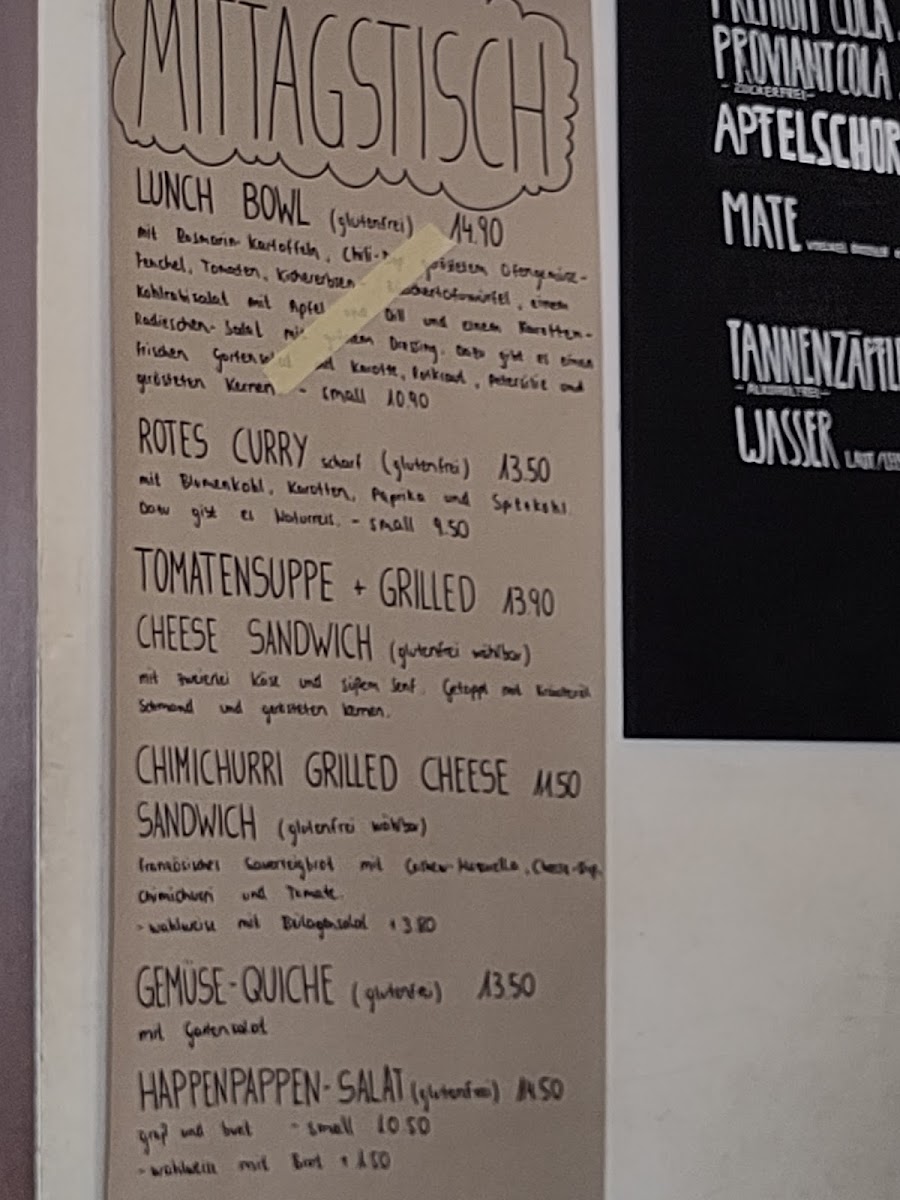 MITTAGSTISCH
LUNCH BOWL (glutenfrei) 14.90
mit Rosmarin-Kartoffeln, Chili- geröstetem Ofengemüse-
Fenchel, Tomaten, Kichererbsen- Räuchertofuwürfel, einem
Kohlrabisalat mit Apfel und Dill und einem Karotten-
Radieschen-Salat mit Dressing. Dazu gibt es einen
frischen Gartensalat mit Karotte, Rotkraut, Petersilie und
gerösteten Kernen - small 10.90
ROTES CURRY scharf (glutenfrei) 13.50
mit Blumenkohl, Karotten, Paprika und Spitzkohl.
Dazu gibt es Naturreis. - small 9.50
TOMATENSUPPE + GRILLED 13.90
CHEESE SANDWICH (glutenfrei wählbar)
mit zweierlei Käse und süßem Senf. Getoppt mit Kräuteröl
Schmand und gerösteten Kernen.
CHIMICHURRI GRILLED CHEESE 11.50
SANDWICH (glutenfrei wählbar)
französisches Sauerteigbrot mit Cashew-Mozzarella, Cheese-Dip,
Chimichurri und Tomate.
- wahlweise mit Beilagensalat + 3.80
GEMÜSE-QUICHE (glutenfrei) 13.50
mit Gartensalat
HAPPENPAPPEN-SALAT (glutenfrei) 14.50
groß und bunt - small 10.50
- wahlweise mit Brot + 1.50
PREMIUM COLA
PROVIANT COLA
- ZUCKERFREI -
APFELSCHOR
MATE
TANNENZÄPFLE
- ALKOHOLFREI -
WASSER LAUT/LEI